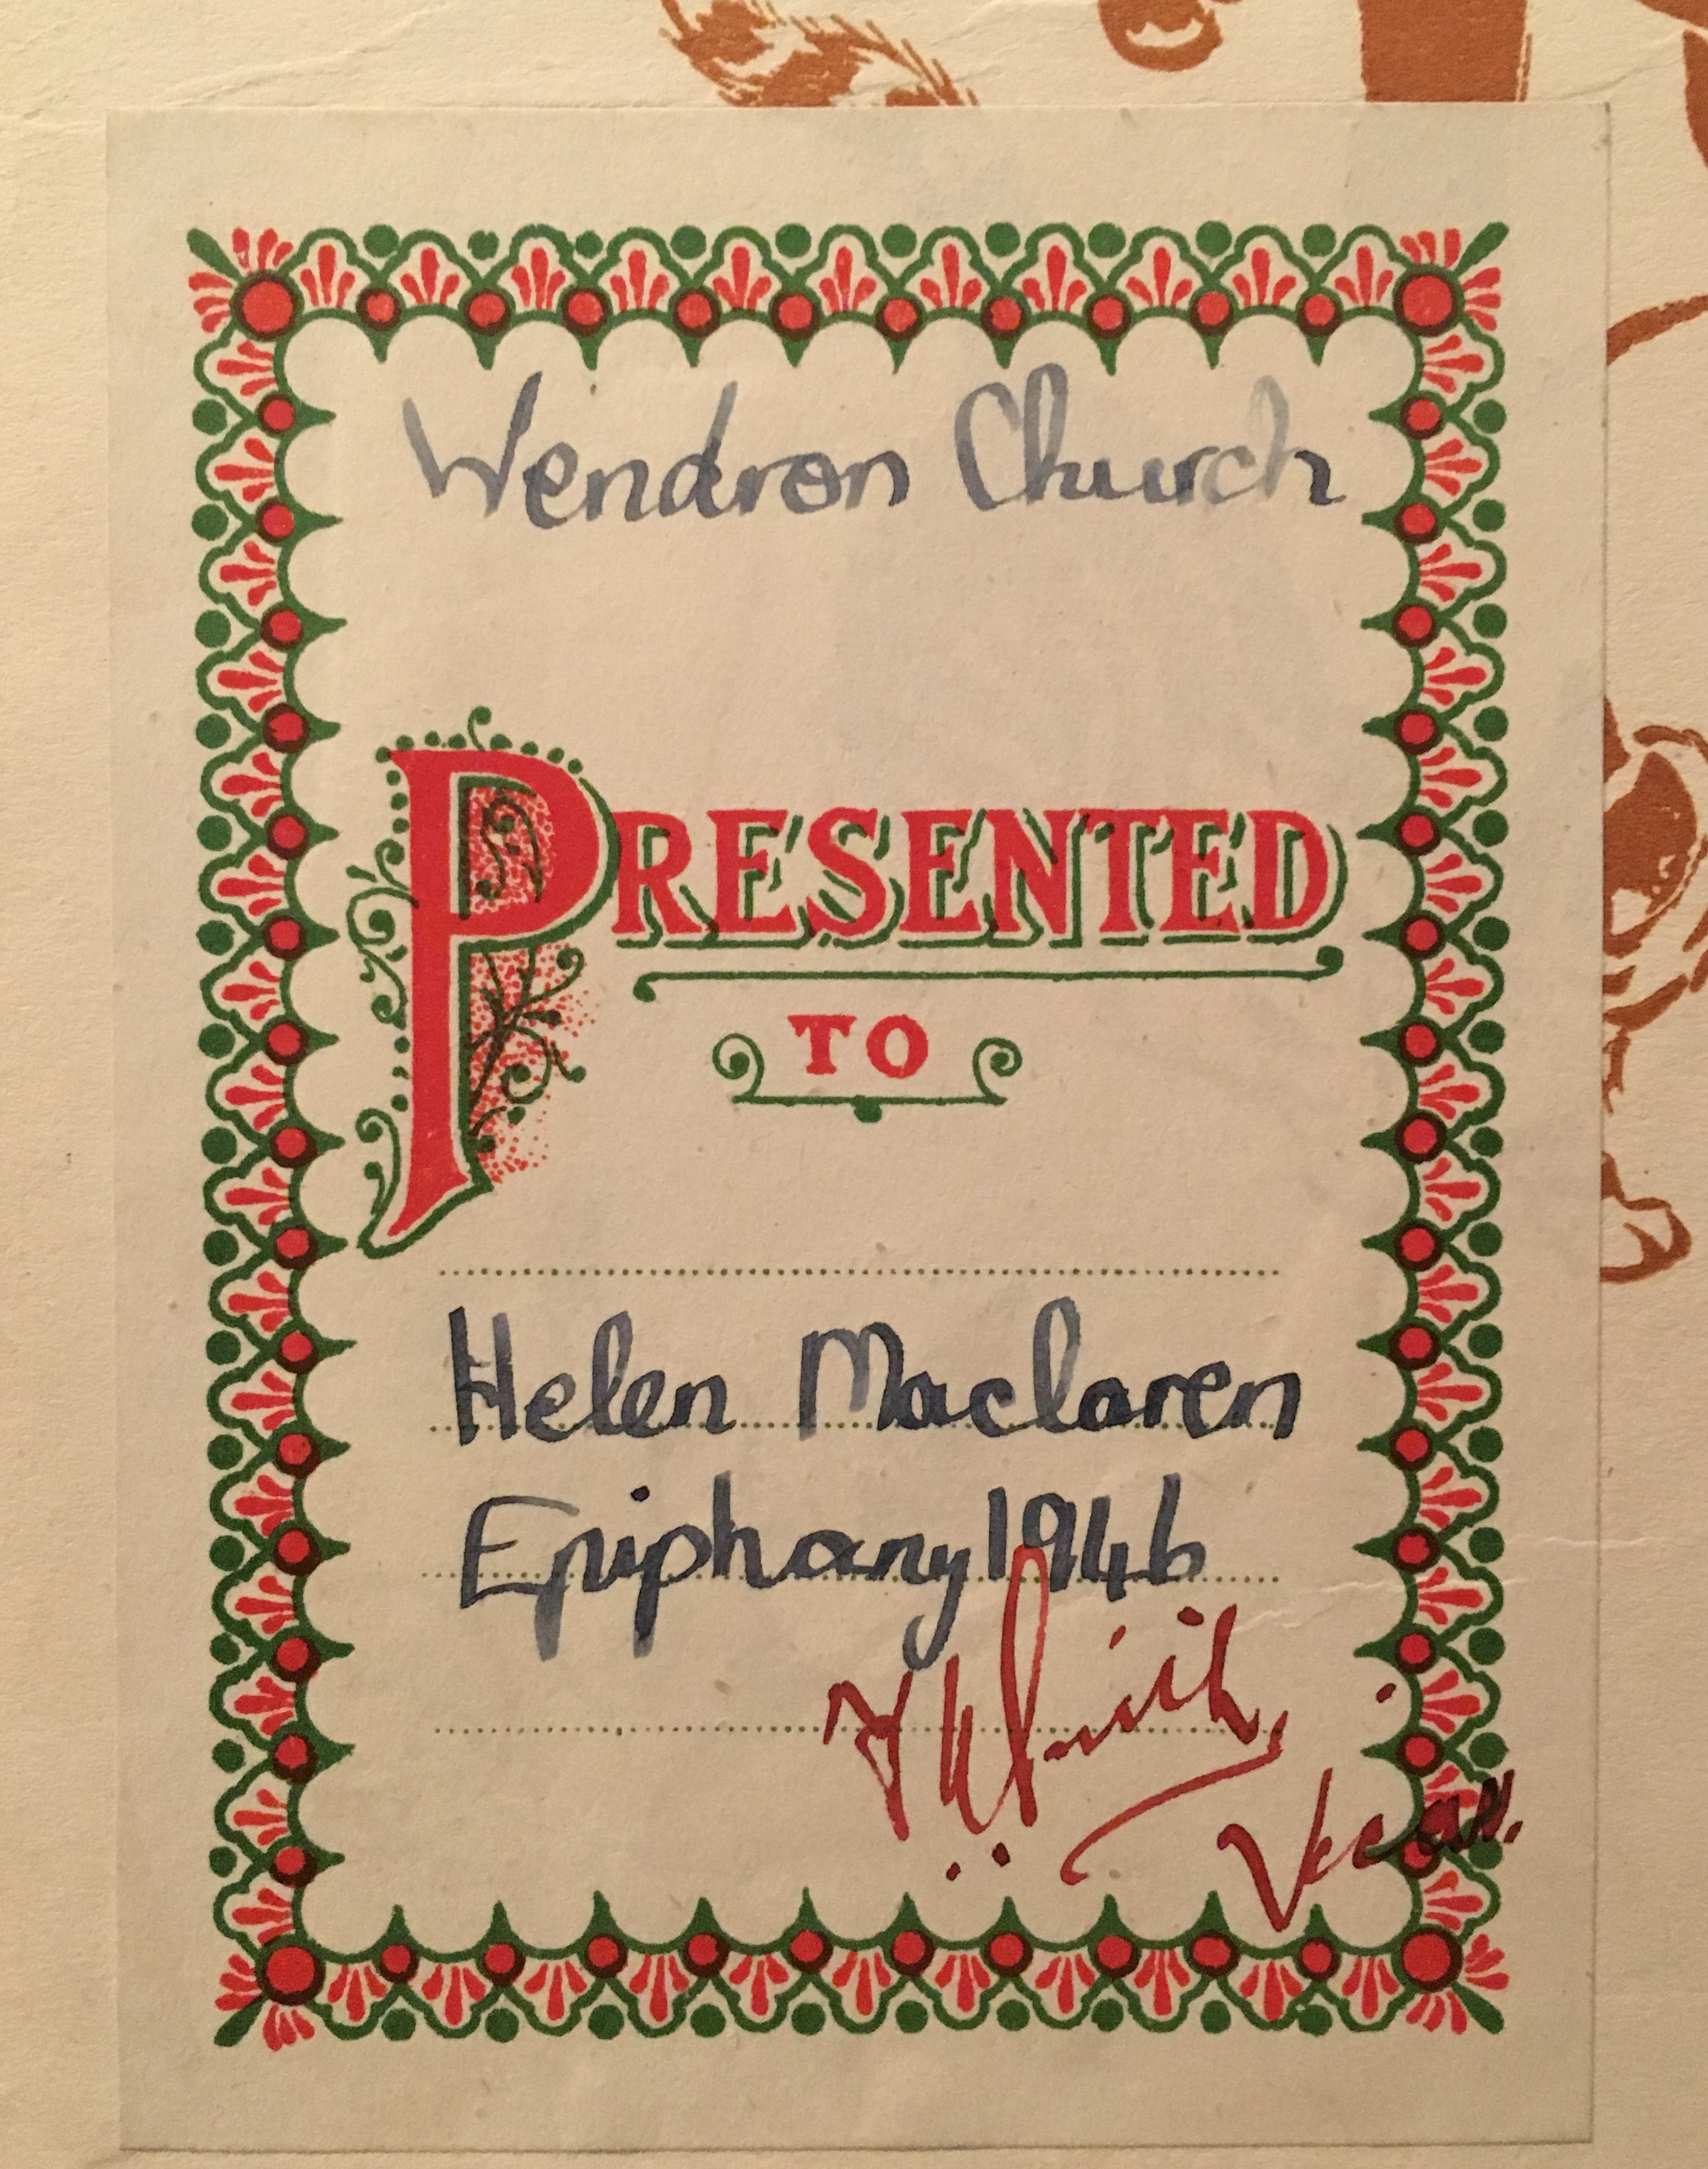 Wendron Church
PRESENTED
TO
Helen Maclaren
Epiphany 1946
Vicar.